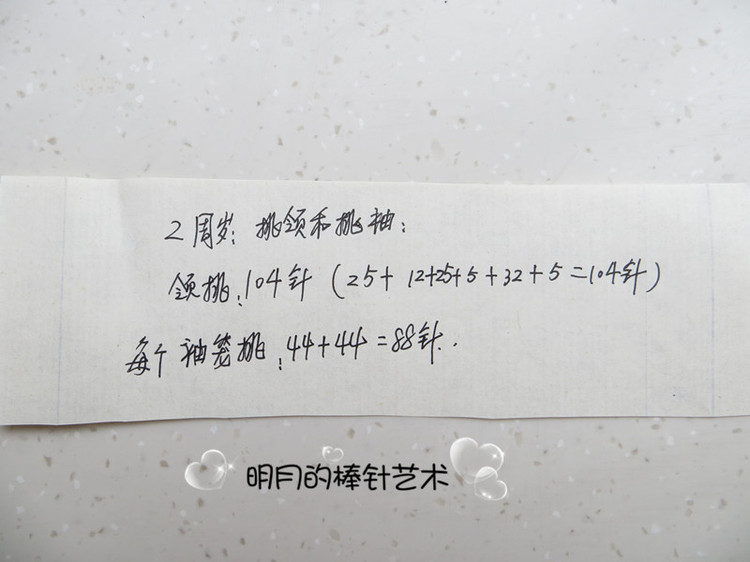 2周岁：挑领和挑袖：
领挑：104针（25+12+25+5+32+5=104针）
每个袖笼挑：44+44=88针.
明月的棒针艺术